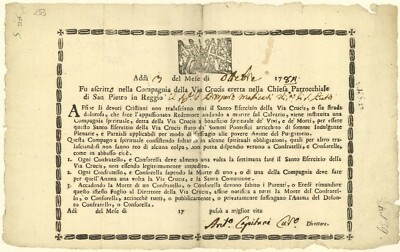 Addì 13 del Mese di Ottobre 17
Fu ascritt nella Compagnia della Via Crucis eretta nella Chiesa Parrocchiale
di San Pietro in Reggio
Affinche li devoti Cristiani non tralascino mai il Santo Esercizio della Via Crucis, o sia strada
dolorosa, che fece l'appassionato Redentore andando a morire sul Calvario, viene istituita una
Compagnia spirituale, detta della Via Crucis a beneficio spirituale de' Vivi, e de' Morti, per essere
questo Santo Esercizio della Via Crucis stato da' Sommi Pontefici arricchito di somme Indulgenze
Plenarie, e Parziali applicabili per modo di suffragio alle povere Anime del Purgatorio.
Questa Compagnia spirituale consisterà in alcune spirituali obbligazioni, quali però tra-
lasciandosi non sono rei di alcuna colpa, non potrà dipender verun o Confratello, o Consorella,
come in abbasso cioè.
1. Ogni Confratello, e Consorella deve almeno una volta la settimana fare il Santo Esercizio della
Via Crucis, non essendo legittimamente impedito.
2. Ogni Confratello, e Consorella saputa la morte di uno, o di una della Compagnia deve fare
per quell'Anima una volta la Via Crucis, e la Santa Comunione.
3. Accadendo la Morte di un Confratello, o Consorella devono subito i Parenti, o Eredi rimandare
questo stesso Foglio al Direttore della Via Crucis, acciò notifica a tutti la Morte del Confratel-
lo, o Consorella, acciocchè tutti, o pubblicamente, o privatamente suffragano l'Anima del Defon-
to Confratello, o Consorella.
Addì del Mese di 17 passò a miglior vita
Ant.° Direttore.